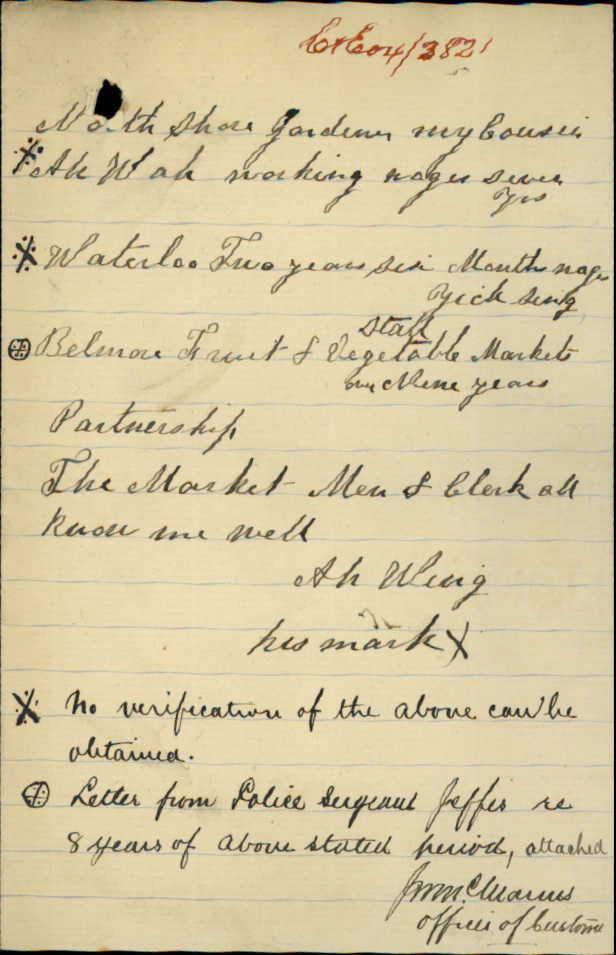 North Shore Gardener my Cousin
Ah Wah working wages seven
yrs
Waterloo Two years six Months wages
Yick Sing
Stall
Belmore Fruit & Vegetable Markets
Nine years
Partnership
The Market Men & Clerk all
know me well
Ah Wing
his mark X
No verification of the above can be
obtained.
Letter from Police Sergeant Jeffes re
8 years of above stated period, attached
Officer of Customs